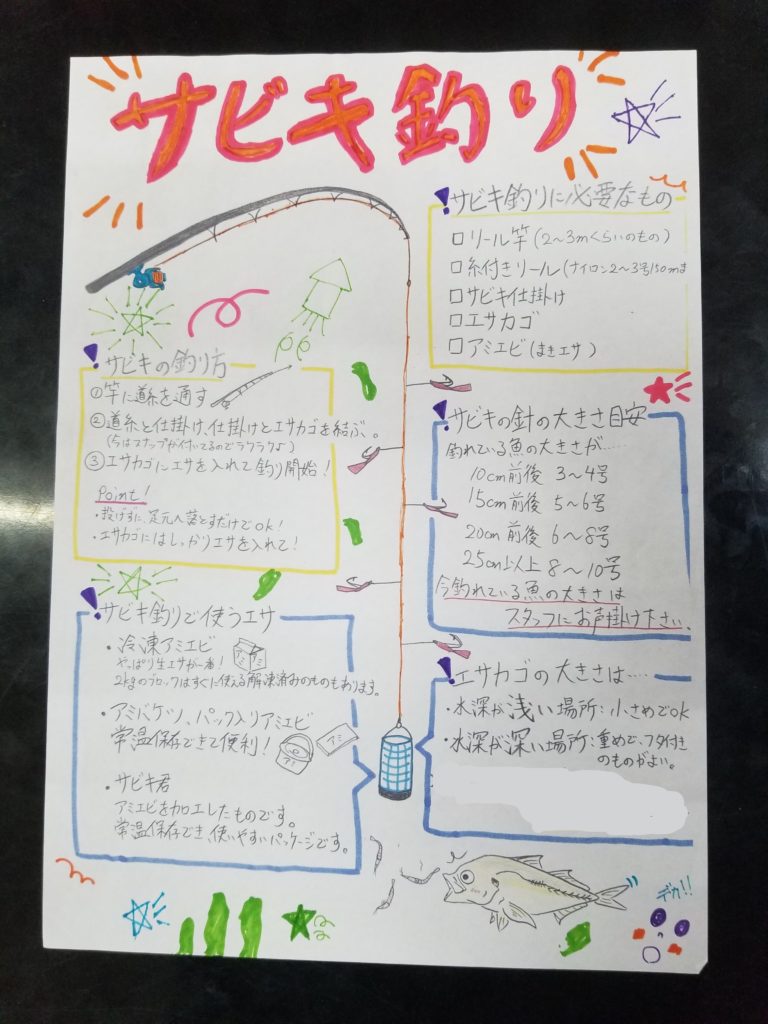 サビキ釣り
!サビキ釣りに必要なもの
□リール竿(2〜3mくらいのもの)
□糸付きリール(ナイロン2〜3号150m
□サビキ仕掛け
□エサカゴ
□アミエビ(まきエサ)
!サビキの釣り方
①竿に道糸を通す
②道糸と仕掛け、仕掛けとエサカゴを結ぶ。
(今はスナップが付いてるのでラクラク♪)
③エサカゴにエサを入れて釣り開始!
Point!
・投げずに、足元へ落とすだけでOK!
・エサカゴにはしっかりエサを入れて!
!サビキの針の大きさ目安
釣れている魚の大きさが……
10cm前後 3〜4号
15cm前後 5〜6号
20cm前後 6〜8号
25cm以上 8〜10号
今釣れている魚の大きさは
スタッフにお声掛け下さい。
!サビキ釣りで使うエサ
・冷凍アミエビ
やっぱり生エサが一番!
アミ
アミ
2kgのブロックはすぐに使える解凍済みのものもあります。
・アミバケツ、パック入りアミエビ
常温保存できて便利!
アミ
アミ
・サビキ君
アミエビを加工したものです。
常温保存でき、使いやすいパッケージです。
!エサカゴの大きさは……
・水深が浅い場所:小さめでOK
・水深が深い場所:重めで、フタ付き
のものがよい。
デカ!!